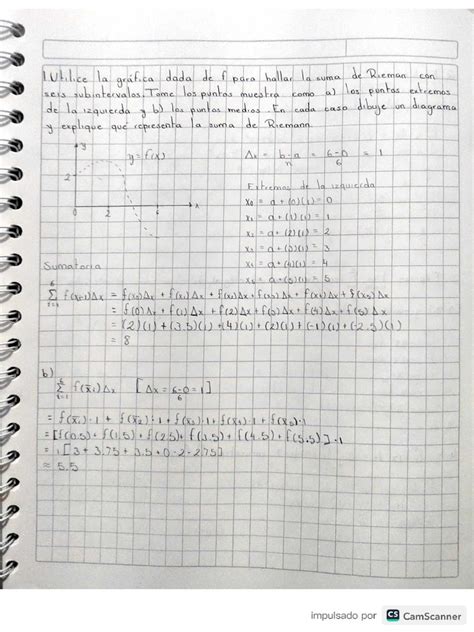 1. Utilice la gráfica dada de f para hallar la suma de Rieman con
seis subintervalos. Tome los puntos muestra como a) los puntos extremos
de la izquierda y b) los puntos medios. En cada caso dibuje un diagrama
y explique qué representa la suma de Riemann.
y
y = f(x)
2
0 2 6 x
Δx = b-a/n = 6-0/6 = 1
Extremos de la izquierda
x₀ = a + (0)(1) = 0
x₁ = a + (1)(1) = 1
x₂ = a + (2)(1) = 2
x₃ = a + (3)(1) = 3
x₄ = a + (4)(1) = 4
x₅ = a + (5)(1) = 5
Sumatoria
= f(x₀)Δx + f(x₁)Δx + f(x₂)Δx + f(x₃)Δx + f(x₄)Δx + f(x₅)Δx
= f(0)Δx + f(1)Δx + f(2)Δx + f(3)Δx + f(4)Δx + f(5)Δx
= (2)(1) + (3.5)(1) + (4)(1) + (2)(1) + (-1)(1) + (-2.5)(1)
= 8
b)
6 Σ i=1 f(x̄ᵢ)Δx [Δx = 6-0/6 = 1]
= [f(0.5) + f(1.5) + f(2.5) + f(3.5) + f(4.5) + f(5.5)] · 1
= 1[3 + 3.75 + 3.5 + 0 - 2 - 2.75]
≈ 5.5
impulsado por CS CamScanner